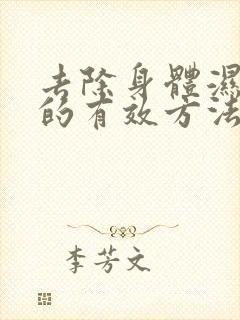 去除身體濕
的有效方法
李芳文